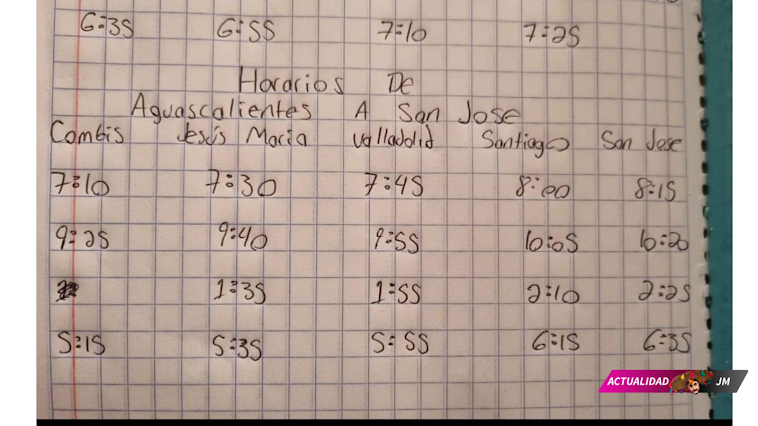 6:35 6:55 7:10 7:25
Horarios De
Aguascalientes A San Jose
Combis Jesús Maria Valladolid Santiago San Jose
7:10 7:30 7:45 8:00 8:15
9:25 9:40 9:55 10:05 10:20
1:35 1:55 2:10 2:25
5:15 5:35 5:55 6:15 6:35
ACTUALIDAD JM